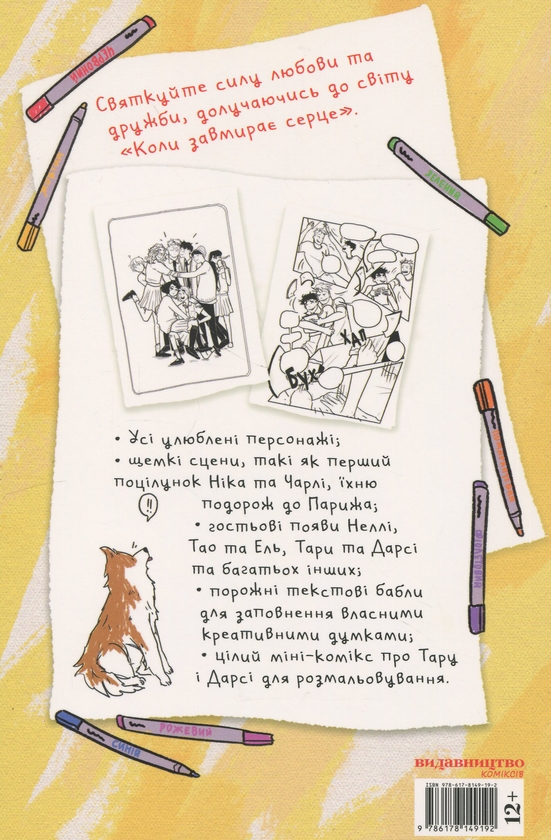 ЧЕРВОНИЙ
Святкуйте силу любови та
дружби, долучаючись до світу
«Коли завмирає серце».
ЗЕЛЕНИЙ
ХАП
БУХ
• Усі улюблені персонажі;
• щемкі сцени, такі як перший
поцілунок Ніка та Чарлі, їхню
подорож до Парижа;
!!
• гостьові появи Неллі,
Тао та Ель, Тари та Дарсі
та багатьох інших;
• порожні текстові бабли
для заповнення власними
креативними думками;
• цілий міні-комікс про Тару
і Дарсі для розмальовування.
РОЖЕВИЙ
СИНІЙ
ВИДАВНИЦТВО
КОМІКСІВ
ISBN 978-617-8149-19-2
9 786178 149192
12+